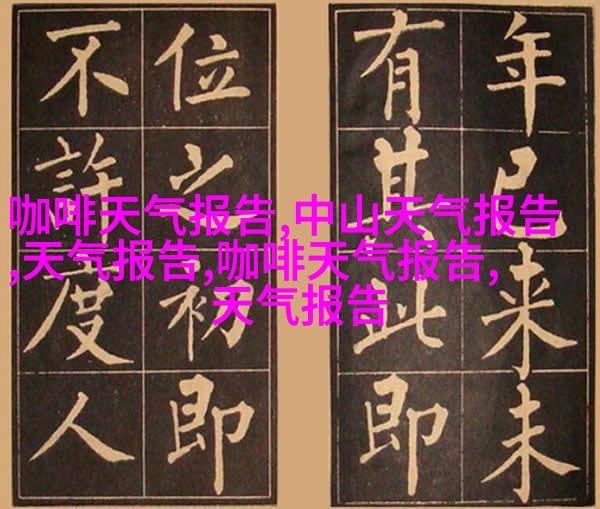 年已来未
有其此即
位之初即
不許度人
咖啡天气报告,中山天气报告
,天气报告,咖啡天气报告,
天气报告